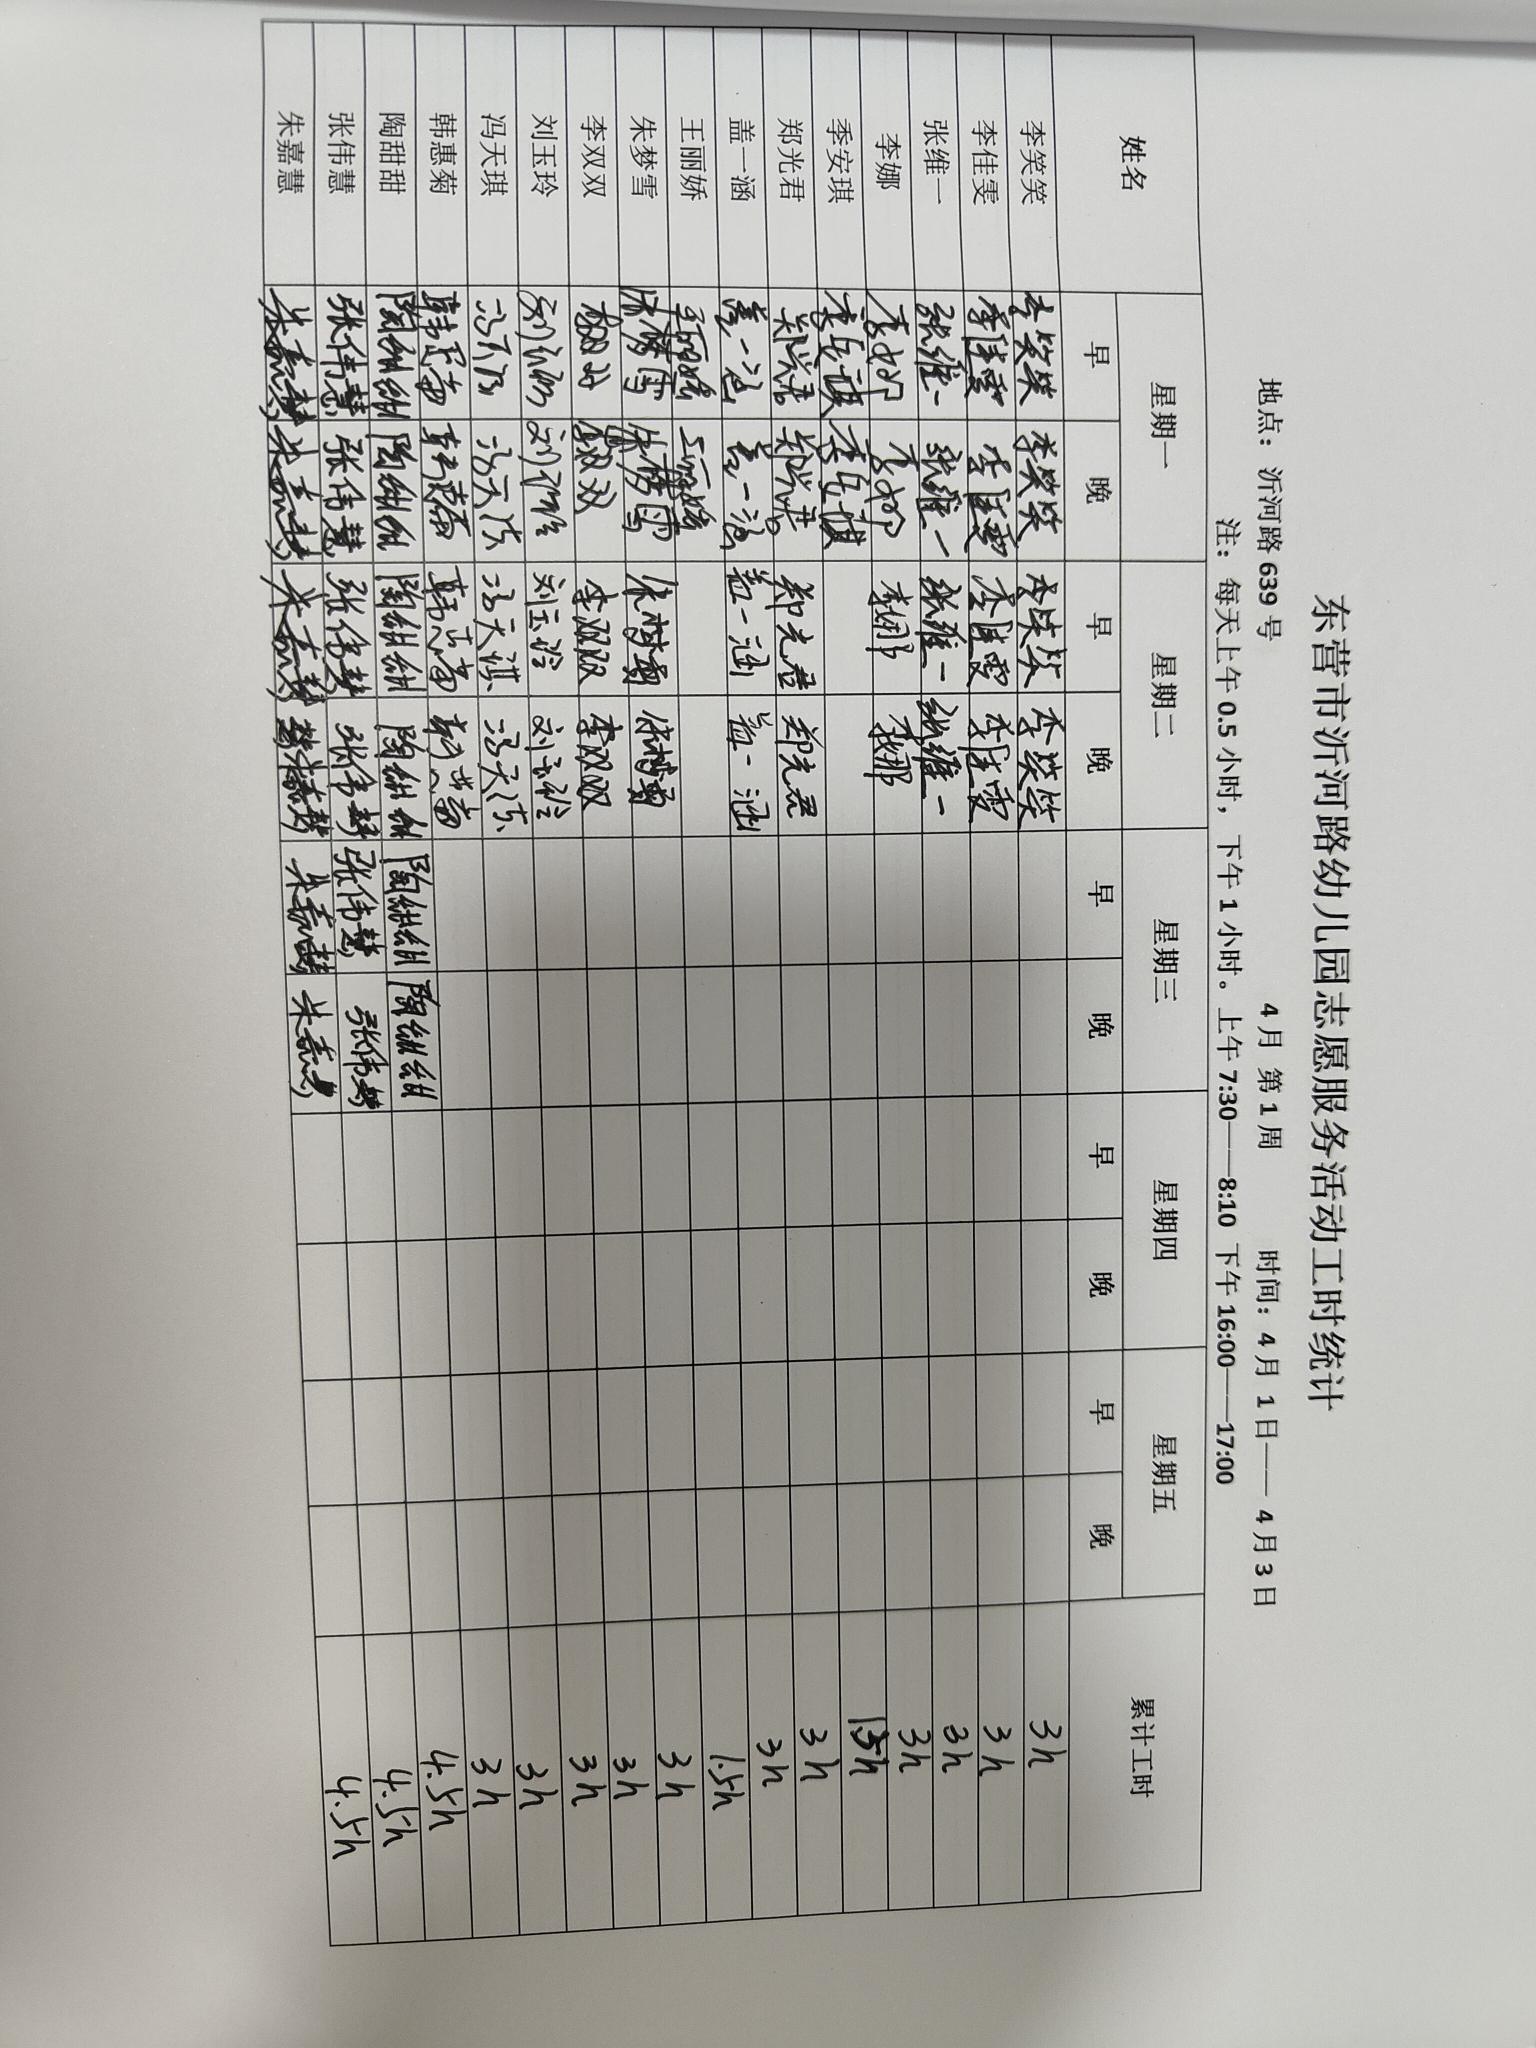 东营市沂河路幼儿园志愿服务活动工时统计
地点： 沂河路 639 号 4 月 第 1 周 时间：4 月 1 日—— 4 月 3 日
注：每天上午 0.5 小时，下午 1 小时。上午 7:30——8:10 下午 16:00——17:00
姓名 星期一 星期二 星期三 星期四 星期五 累计工时
早 晚 早 晚 早 晚 早 晚 早 晚
李笑笑 李笑笑 李笑笑 李笑笑 李笑笑 3h
李佳雯 李佳雯 李佳雯 李佳雯 李佳雯 3h
张维一 张维一 张维一 张维一 张维一 3h
李娜 李娜 李娜 李娜 李娜 3h
季安琪 季安琪 季安琪 1.5h
郑光君 郑光君 郑光君 郑光君 郑光君 3h
盖一涵 盖一涵 盖一涵 盖一涵 盖一涵 3h
王丽娇 王丽娇 王丽娇 1.5h
朱梦雪 朱梦雪 朱梦雪 朱梦雪 朱梦雪 3h
李双双 李双双 李双双 李双双 李双双 3h
刘玉玲 刘玉玲 刘玉玲 刘玉玲 刘玉玲 3h
冯天琪 冯天琪 冯天琪 冯天琪 冯天琪 3h
韩惠菊 韩惠菊 韩惠菊 韩惠菊 韩惠菊 3h
陶甜甜 陶甜甜 陶甜甜 陶甜甜 陶甜甜 陶甜甜 陶甜甜 4.5h
张伟慧 张伟慧 张伟慧 张伟慧 张伟慧 张伟慧 张伟慧 4.5h
朱嘉慧 朱嘉慧 朱嘉慧 朱嘉慧 朱嘉慧 朱嘉慧 朱嘉慧 4.5h